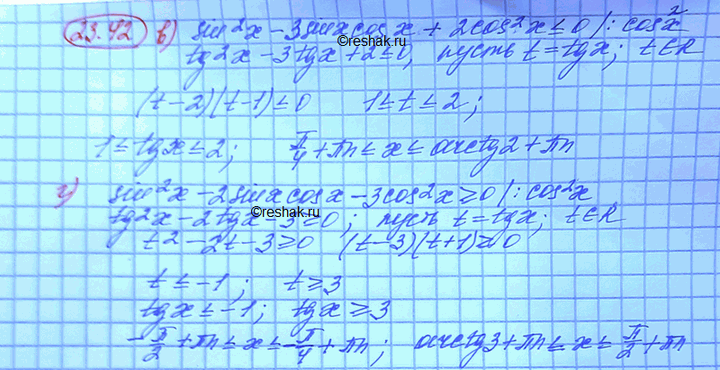 23.42 в) sin²x - 3sinxcosx + 2cos²x ≤ 0 /: cos²x
©reshak.ru
tg²x - 3tgx + 2 ≤ 0, пусть t = tgx; t∈R
(t-2)(t-1) ≤ 0 1 ≤ t ≤ 2;
1 ≤ tgx ≤ 2; π/4 + πn ≤ x ≤ arctg2 + πn
г) sin²x - 2sinxcosx - 3cos²x ≥ 0 /: cos²x
©reshak.ru
tg²x - 2tgx - 3 ≥ 0; пусть t = tgx; t∈R
t² - 2t - 3 ≥ 0 (t-3)(t+1) ≥ 0
t ≤ -1; t ≥ 3
tgx ≤ -1; tgx ≥ 3
-π/2 + πn ≤ x ≤ -π/4 + πn; arctg3 + πn ≤ x ≤ π/2 + πn